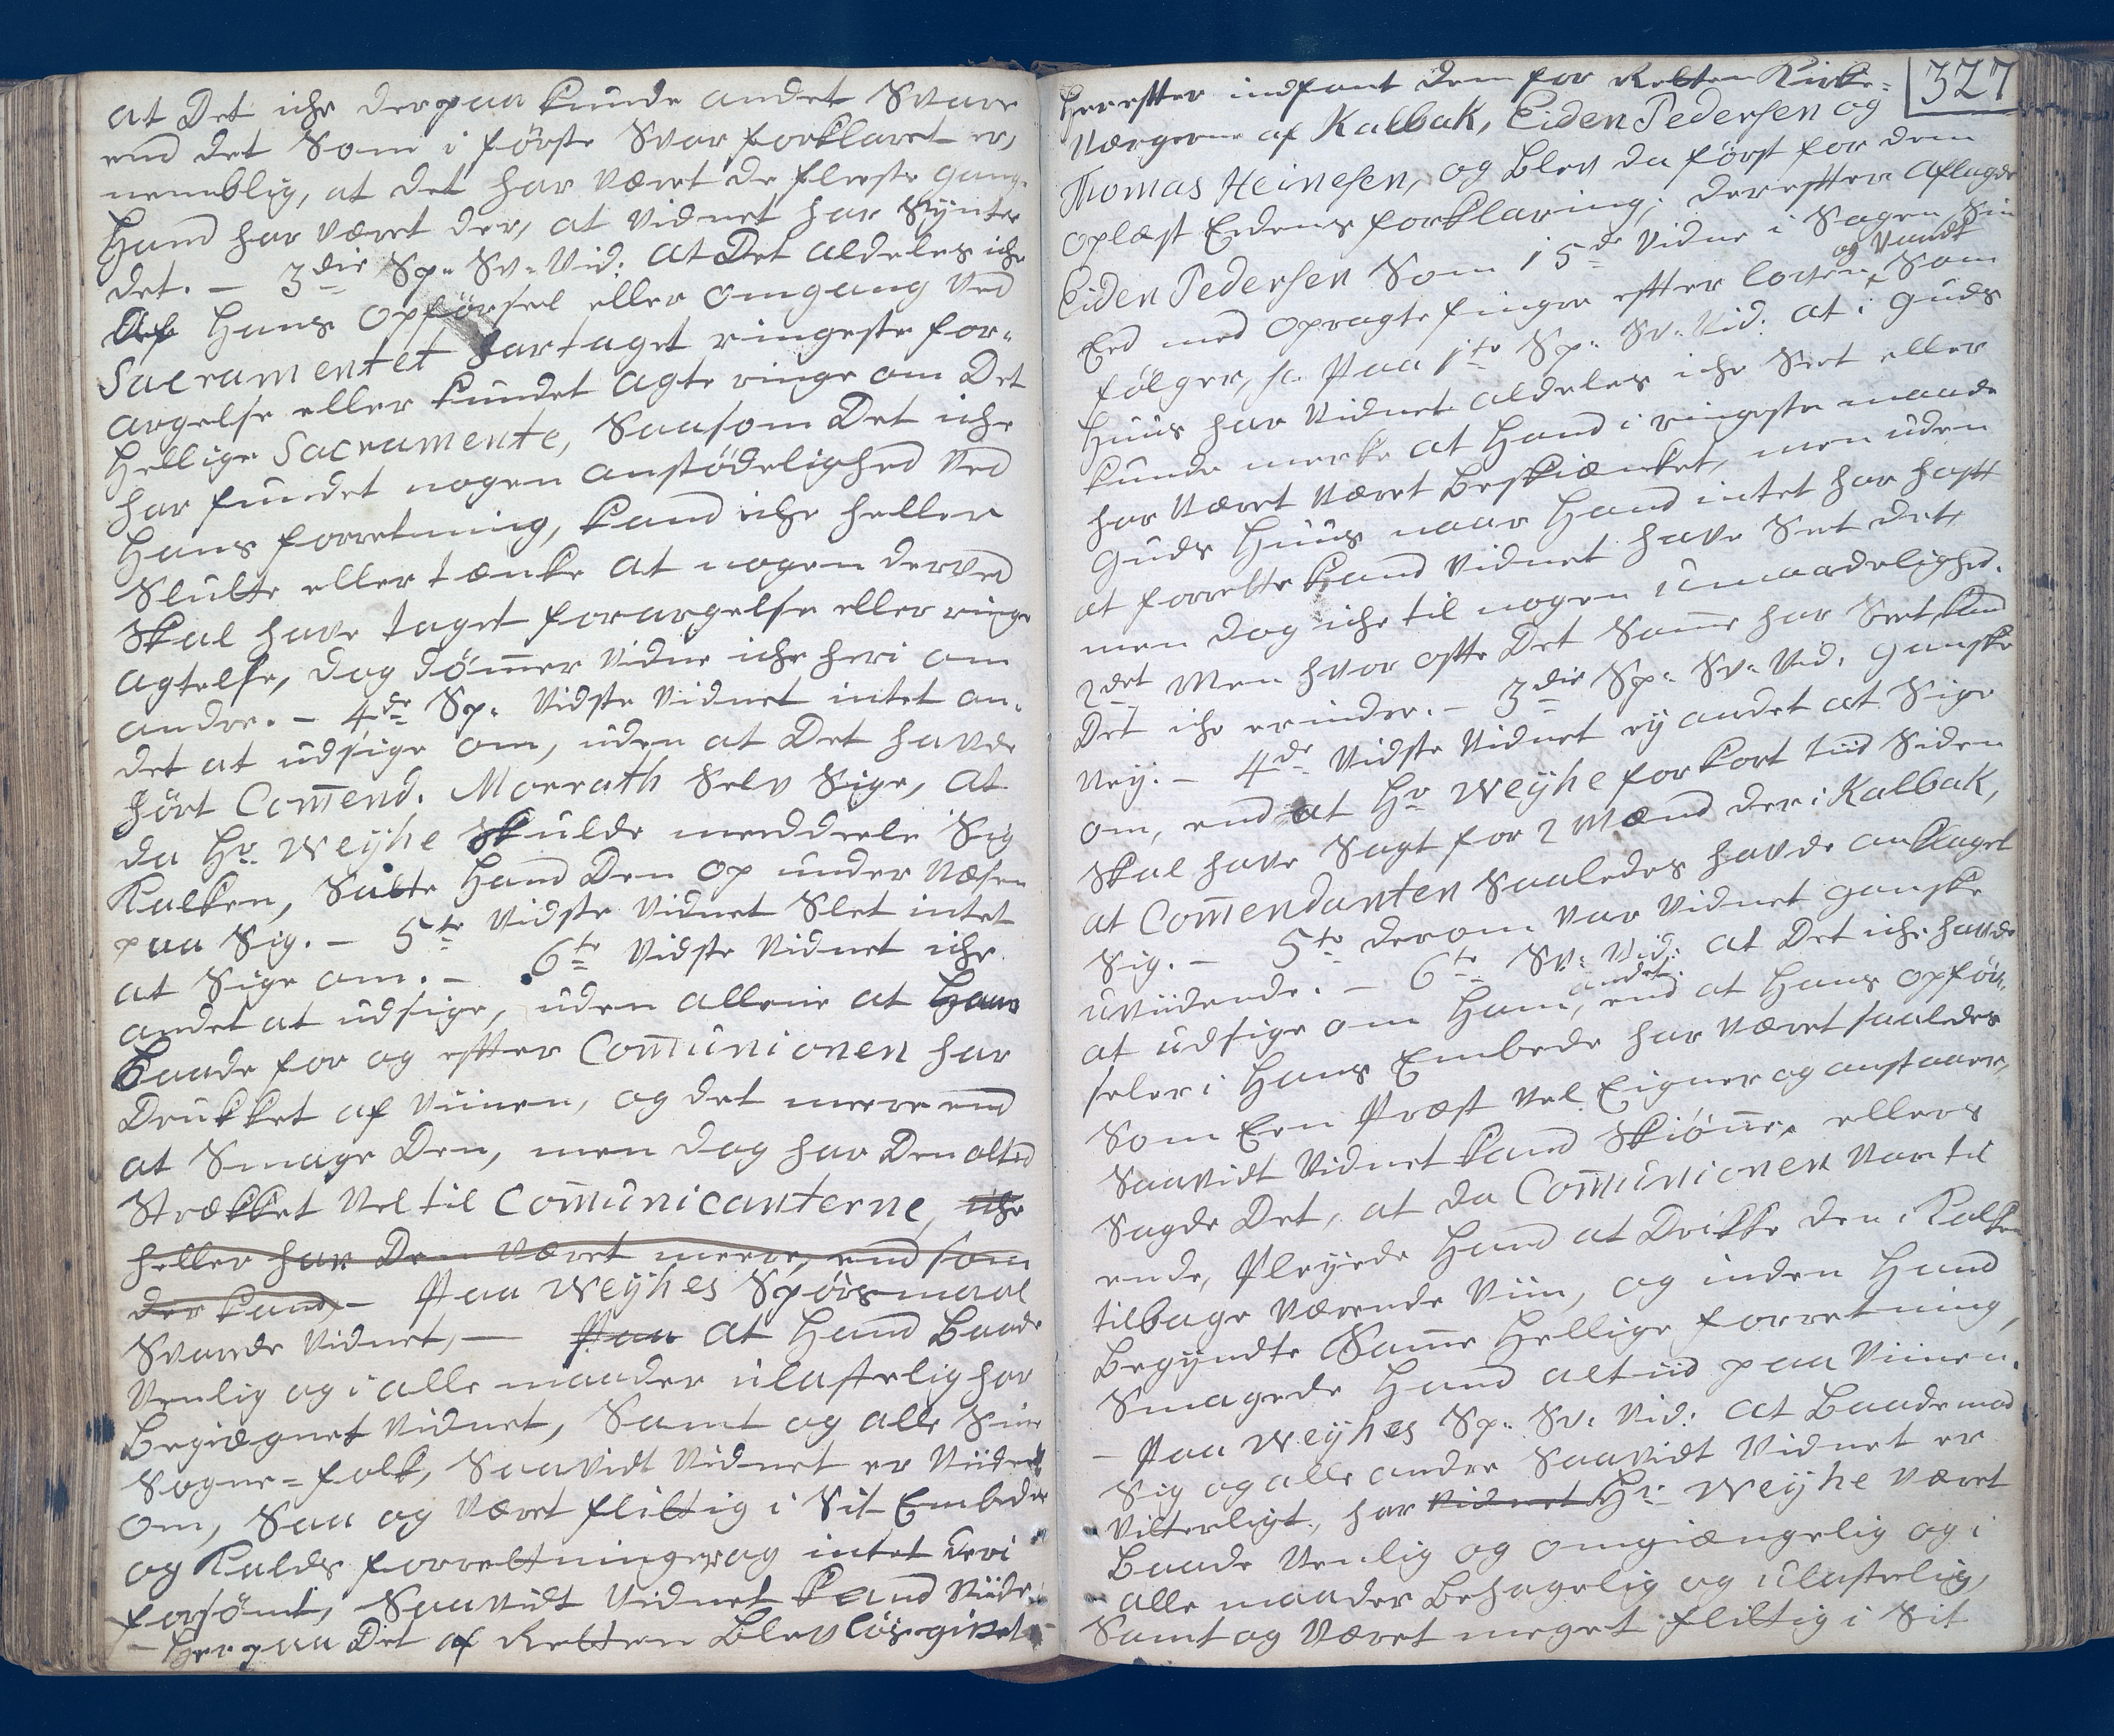 at Det iche derpaa kunde andet Svare
end det Som i første Svar forklaret er,
nemblig, at det har været de fleeste gange
Hand har været der, at Vidnet har Syntes
det. – 3die Sp: Sv: Vid: at Det aldeles iche
Af Hans opførsel eller omgang Ved
Sacramentet har taget ringeste for-
argelse eller kundet agte ringe om Det
Hellige Sacramente, Saasom Det iche
har fundet nogen anstødelighed Ved
Hans forretning, kand iche heller
Slutte eller tænke at nogen derved
Skal have taget forargelse eller ringe
agtelse, dog dømmer Vidne iche heri om
andre. – 4de Sp: Vidste Vidnet intet an-
det at udsige om, uden at Det havde
hørt Comend. Morrath Selv Sige, at
da Hr. Weyhe Skulde meddeele Sig
Kalken, Satte Hand Den op under Næsen
paa Sig. – 5te Vidste Vidnet Slet intet
at Sige om. – 6te Vidste Vidnet iche
andet at udsige, uden allene at Hand
Baade for og effter Comunionen har
Drukket af Viinen, og det meere end
at Smage Den, men dog har Den altid
Strækket Vel til Comunicanterne, iche
heller har Den været meere, end som
der kand, – Paa Weyhes Spørsmaal
Svarede Vidnet, – Paa at Hand Baade
Venlig og i alle maader ulastelig har
Begiægnet Vidnet, Samt og alle Sine
Sogne-folk, Saavidt Vidnet er Viidende
om, Saa og Været flittig i Sit Embede
og Kalds forrettninger, og intet deri
forsømt, Saavidt Vidnet kand Viide.
– Herpaa Det af Retten Blev løsgivet. –
327
Herefter indfant dem for Retten Kirke-
Værgerne af Kalbak, Eiden Pedersen og
Thomas Heinesen, og Blev da først for dem
oplæst Eedens forklaring; derefter aflagde
Eiden Pedersen Som 15de Vidne i Sagen Sin
og Vandt
Eed med opragte fingre effter loven, Som
følger, Paa 1te Sp: Sv: Vid: at i Guds
Huus har Vidnet aldeles iche Seet eller
kunde merke at Hand i ringeste maade
har Været Været Beskiænket, men uden
Guds Huus naar Hand intet har hafft
at forrette kand Vidnet have Seet det,
men dog iche til nogen umaadelighed.
2det Men hvor offte Det Samme har Seet kand
Det iche erindre. – 3die Sp: Sv: Vid: ganske
Ney. – 4de Vidste Vidnet ey andet at Sige
om, end at Hr. Weyhe for kort tiid Siden
Skal have Sagt for 2 Mænd der i Kalbak,
at Comendanten Saaledes havde anklaget
Sig. – 5te derom var Vidnet ganske
uviidende. – 6te Sv: Vid: at Det iche havde
andet
at udsige om Ham, end at Hans opfør-
seler i Hans Embede har Været saaledes
Som Een Præst Vel Eigner og anstaaer,
Saavidt Vidnet kand Skiønne, ellers
Sagde Det, at da Comunionen Var til
ende, Pleyede Hand at Drikke den i Kalken
tilbage Værende Viin, og inden Hand
Begyndte Samme Hellige forretning,
Smagede Hand altiid paa Viinen.
– Paa Weyhes Sp: Sv: Vid: at Baade mod
Sig og alle andre Saavidt Vidnet er
Vitterligt, har Vidnet Hr. Weyhe Været
Baade Venlig og omgiængelig og i
alle maader Behagelig og ulastelig,
Samt og Været meget flittig i Sit